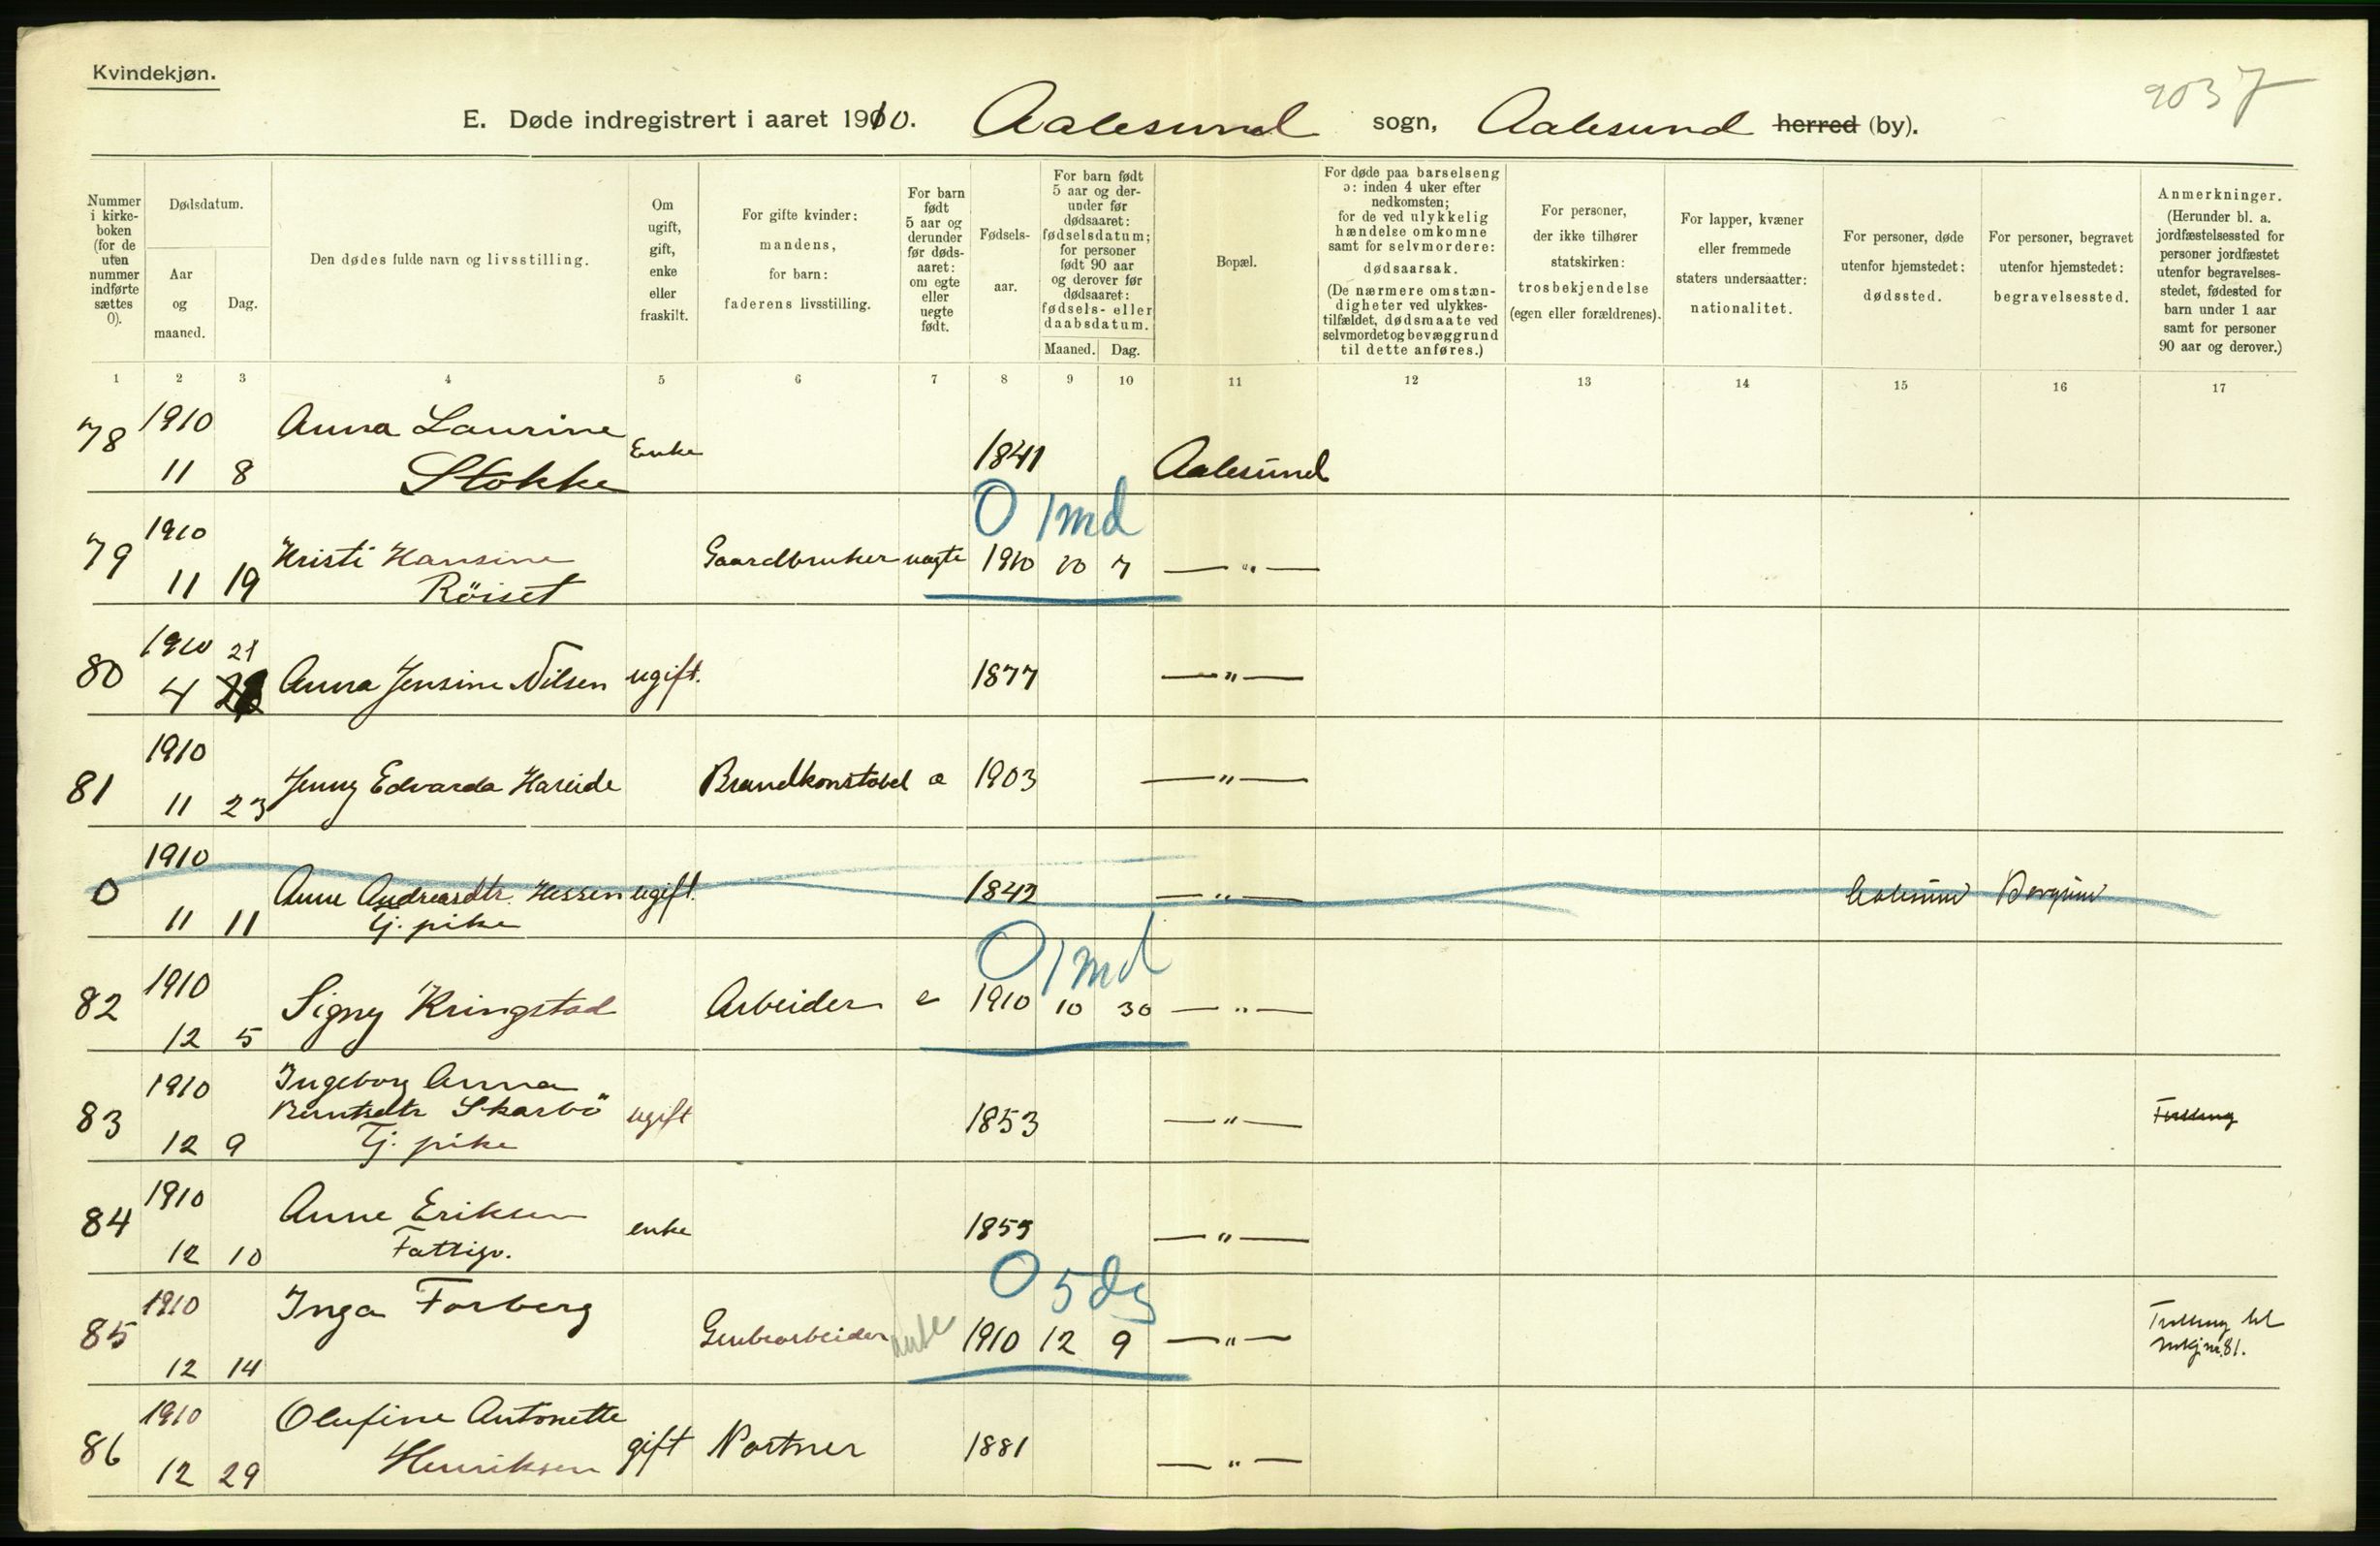 Kvindekjøn.
9037
E. Døde indregistrert i aaret 1910. Aalesund sogn, Aalesund herred (by).
Nummer i kirke- boken (for de uten nummer indførte sættes 0).
Dødsdatum.
Aar og maaned.
Dag.
Den dødes fulde navn og livsstilling.
Om ugift, gift, enke eller fraskilt.
For gifte kvinder: mandens, for barn: faderens livsstilling.
For barn født 5 aar og derunder før døds- aaret: om egte eller uegte født.
Fødsels- aar.
For barn født 5 aar og der- under før dødsaaret: fødselsdatum; for personer født 90 aar og derover før dødsaaret: fødsels- eller daabsdatum.
Maaned. Dag.
Bopæl.
For døde paa barselseng ɔ: inden 4 uker efter nedkomsten; for de ved ulykkelig hændelse omkomne samt for selvmordere: dødsaarsak. (De nærmere omstæn- digheter ved ulykkes- tilfældet, dødsmaate ved selvmordet og bevæggrund til dette anføres.)
For personer, der ikke tilhører statskirken: trosbekjendelse (egen eller forældrenes).
For lapper, kvæner eller fremmede staters undersaatter: nationalitet.
For personer, døde utenfor hjemstedet: dødssted.
For personer, begravet utenfor hjemstedet: begravelsessted.
Anmerkninger. (Herunder bl. a. jordfæstelsessted for personer jordfæstet utenfor begravelses- stedet, fødested for barn under 1 aar samt for personer 90 aar og derover.)
1 2 3 4 5 6 7 8 9 10 11 12 13 14 15 16 17
78 1910 Anna Laurine Enke 1841 Aalesund
11 8 Stokke
0 1 md
79 1910 Kristi Hansine Gaardbruker uegte 1910 10 7 — " —
11 19 Röiset
80 1910 21 Anna Jensine Nilsen ugift. 1877 — " —
4
81 1910 Jenny Edvarda Hareide Brandkonstabel e 1903 — " —
11 23
0 1910 Anne Andreasdtr. Hessen ugift. 1842 — " — Aalesund Borgund
11 11 Tj. pike
0 1 md
82 1910 Signy Kringstad Arbeider e 1910 10 30 — " —
12 5
83 1910 Ingeborg Anna
Berntsdtr Skarbö ugift 1853 — " — Tvilling
12 9 Tj. pike
84 1910 Anne Eriksen enke 1859 — " —
12 10 Fattigv.
0 5 dg
85 1910 Inga Forberg Grubearbeider 1910 12 9 — " — Tvilling til
12 14 mkj nr. 81.
86 1910 Olufine Antonette gift Portner 1881 — " —
12 29 Henriksen